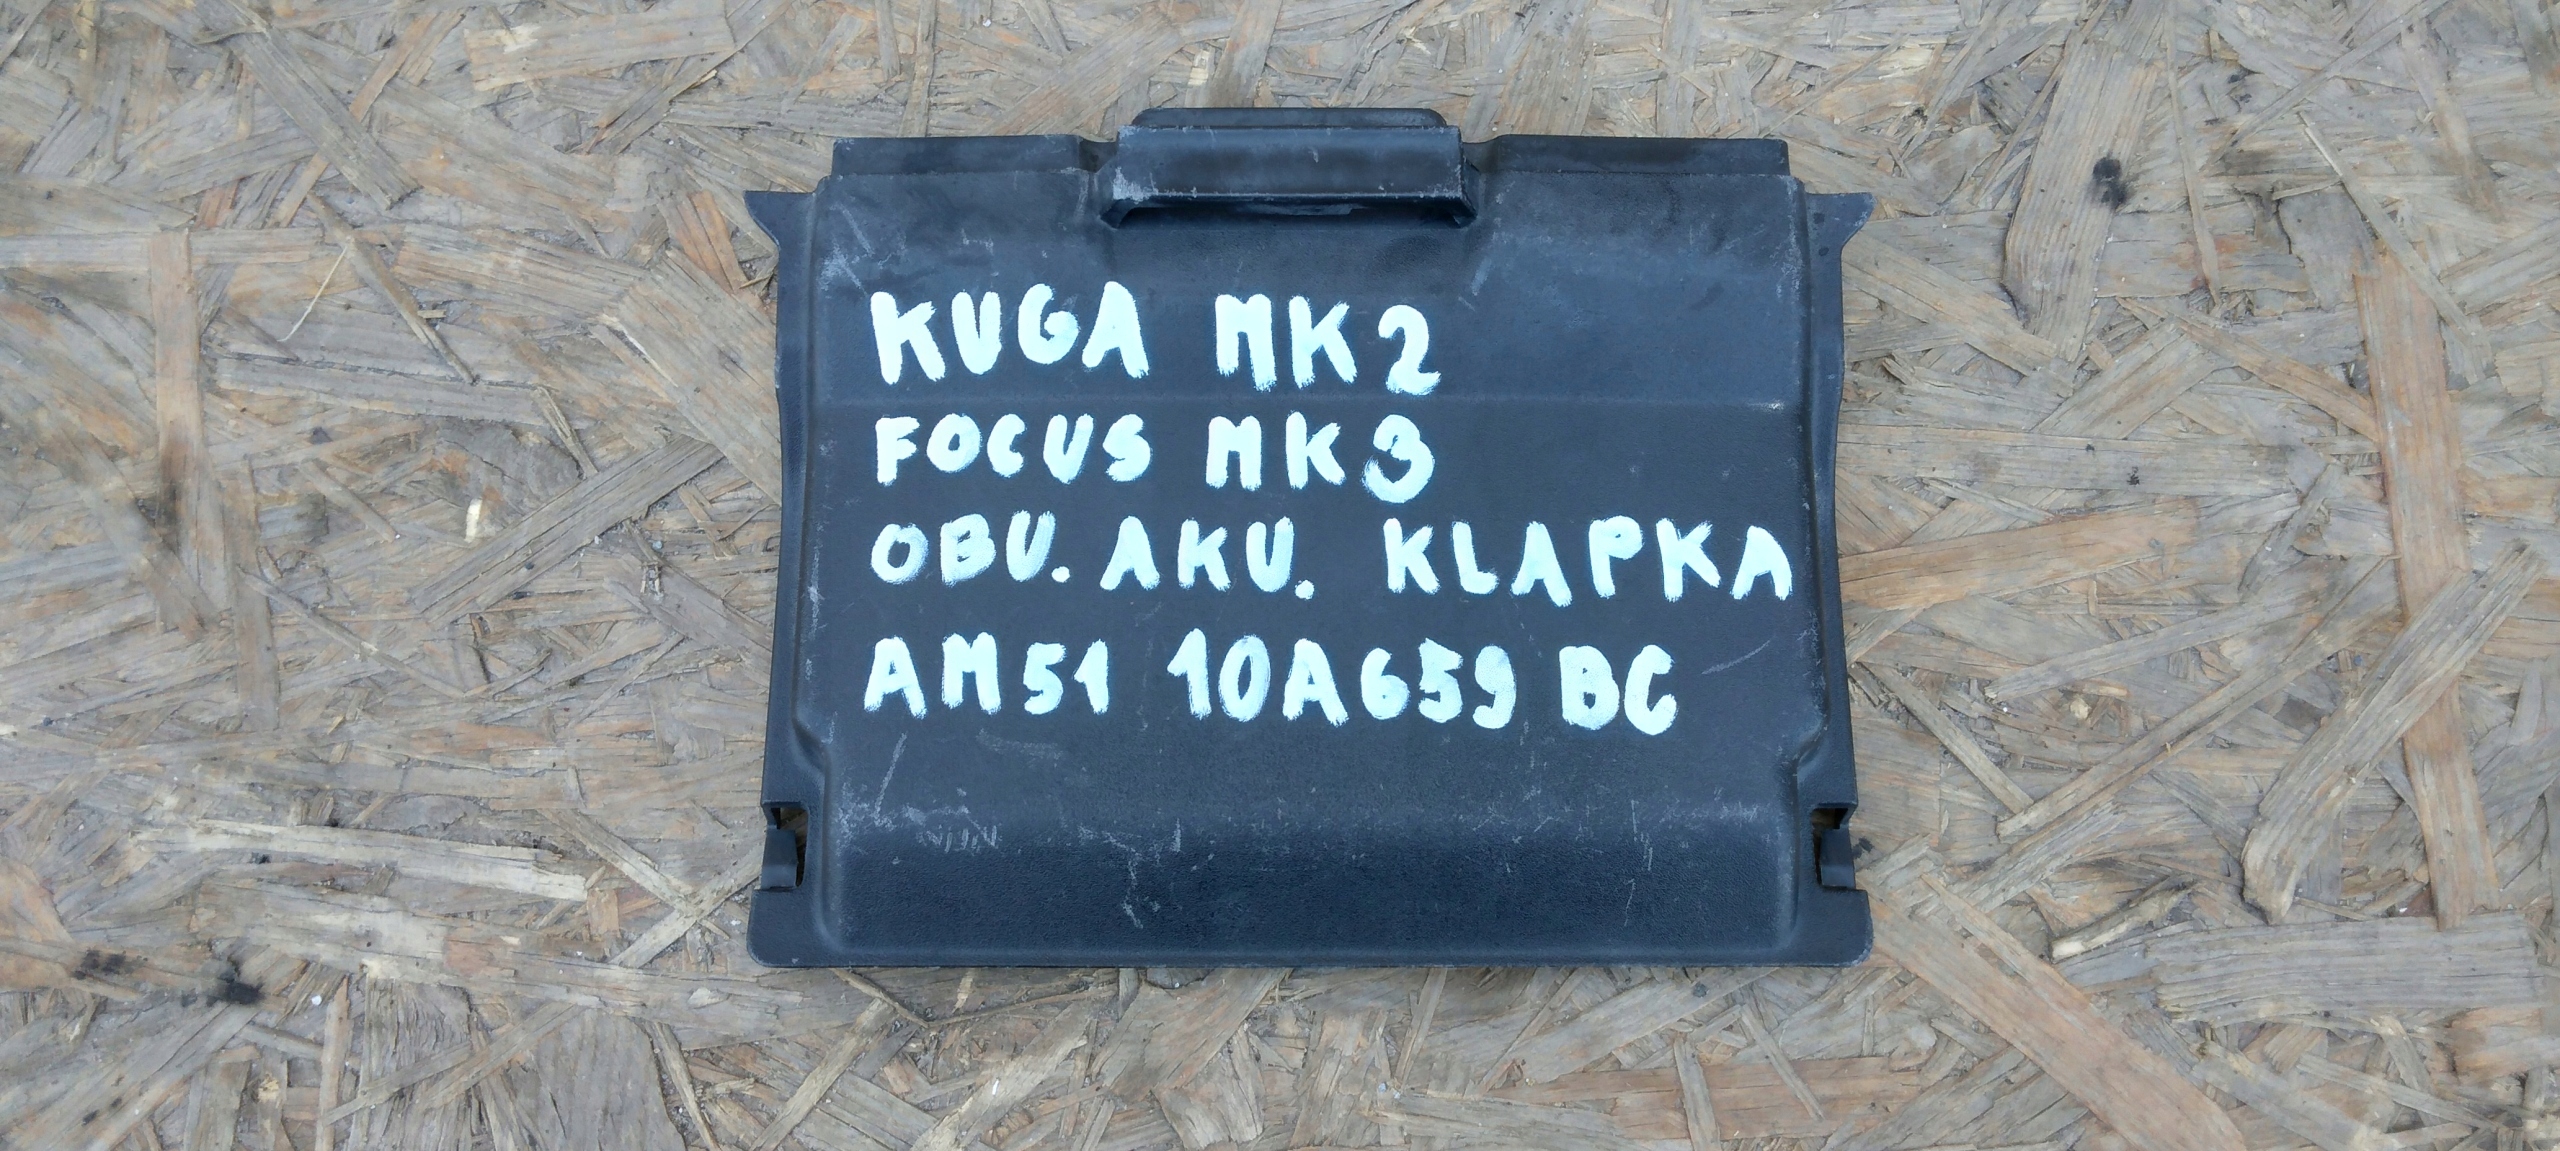 KUGA MK2
FOCUS MK3
OBU. AKU. KLAPKA
AM51 10A659 BC